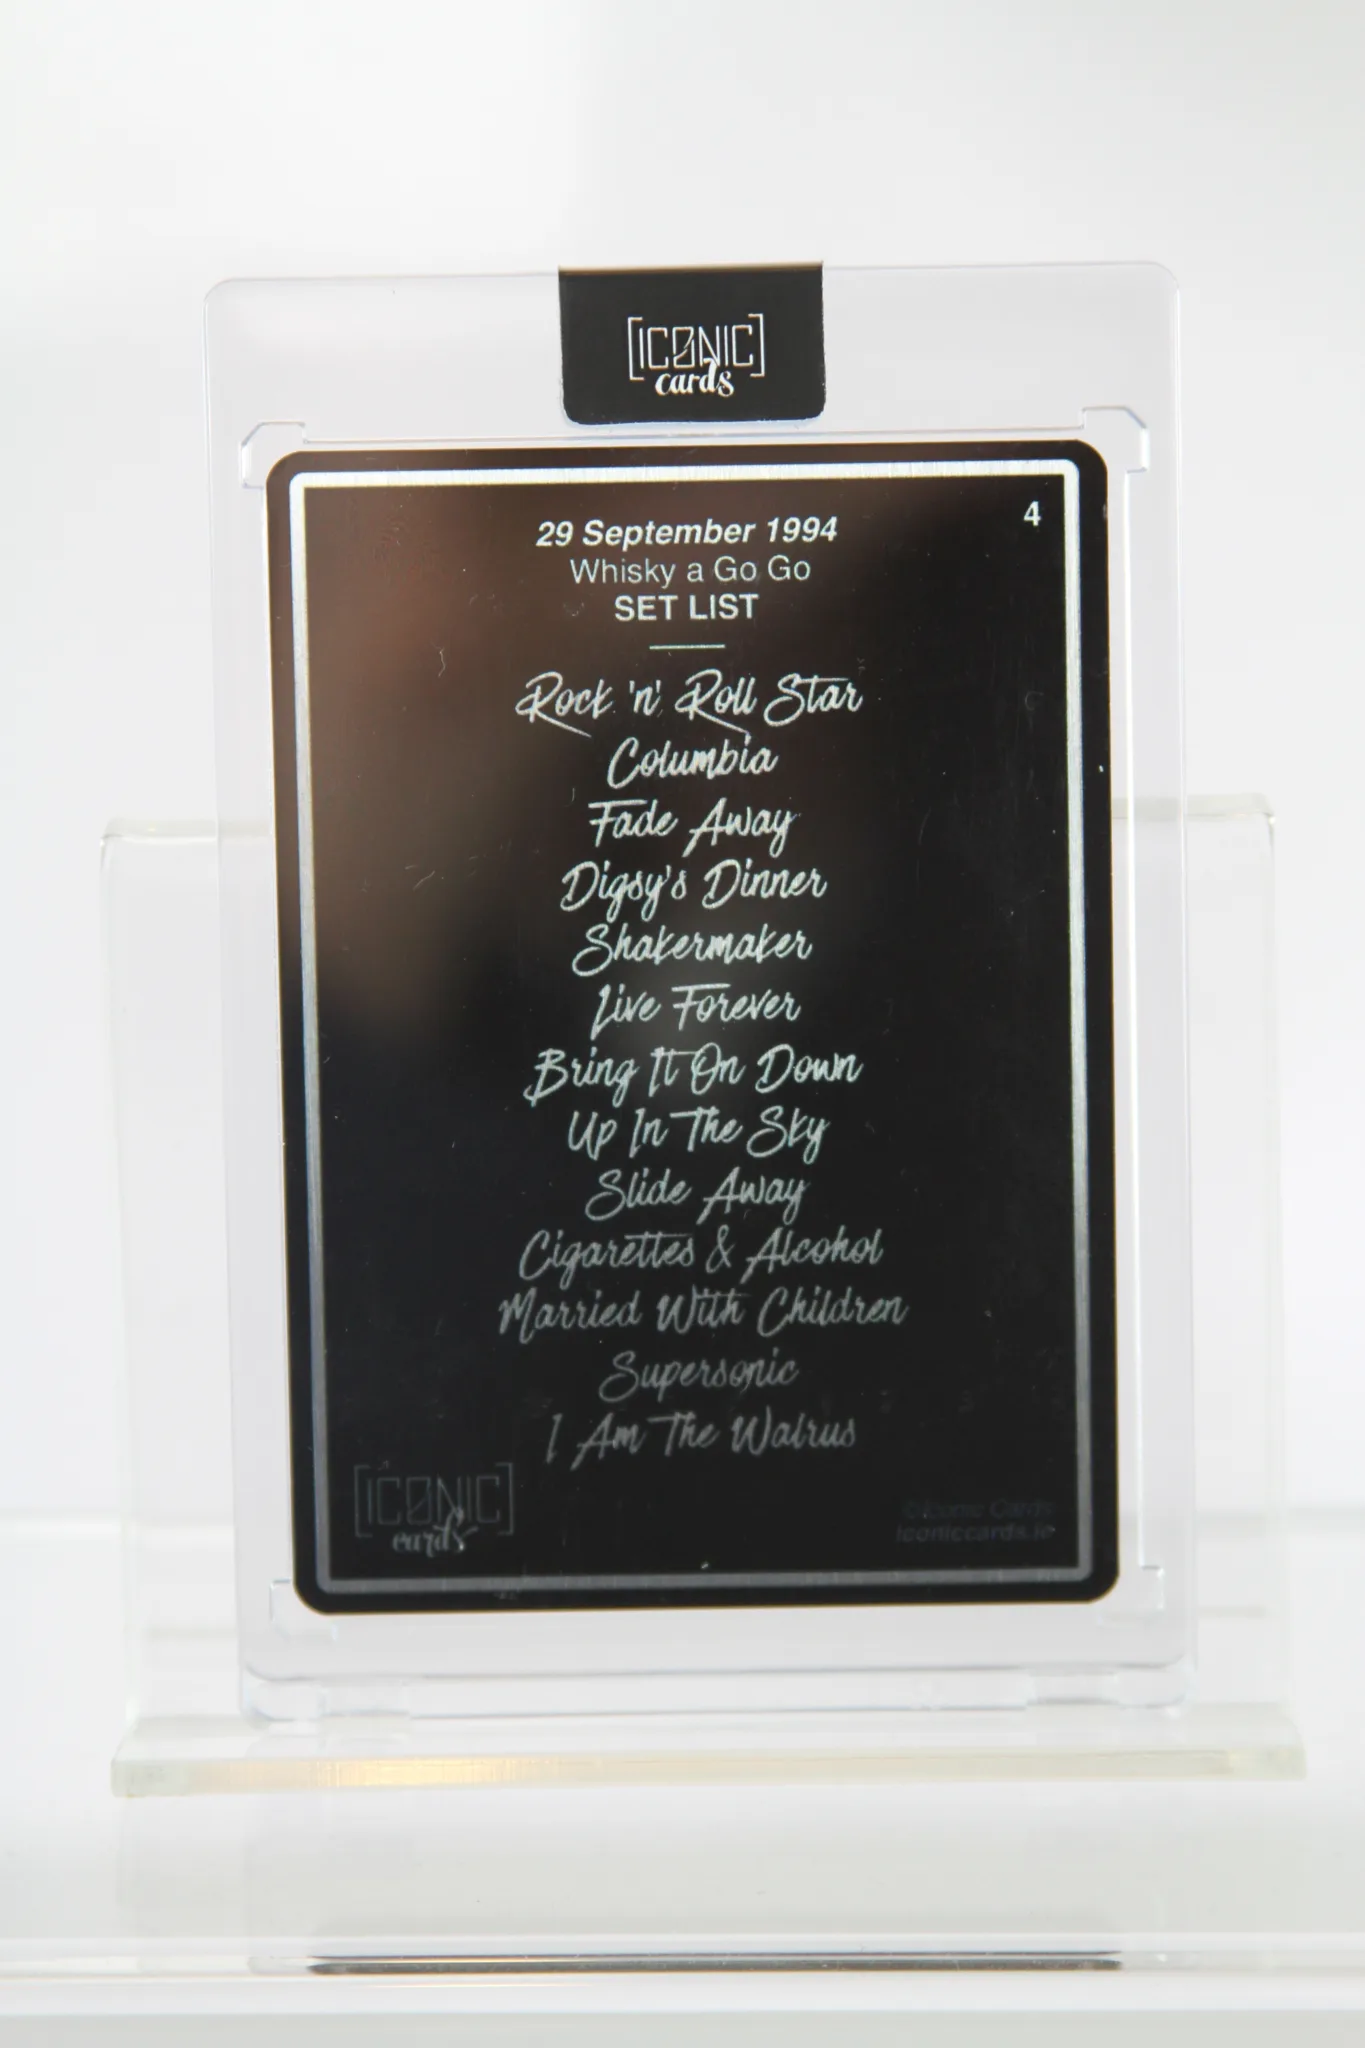 [ICONIC]
cards
4
29 September 1994
Whisky a Go Go
SET LIST
Rock 'n' Roll Star
Columbia
Fade Away
Digsy's Dinner
Shakermaker
Live Forever
Bring It On Down
Up In The Sky
Slide Away
Cigarettes & Alcohol
Married With Children
Supersonic
I Am The Walrus
[ICONIC]
cards
©Iconic Cards
iconiccards.ie